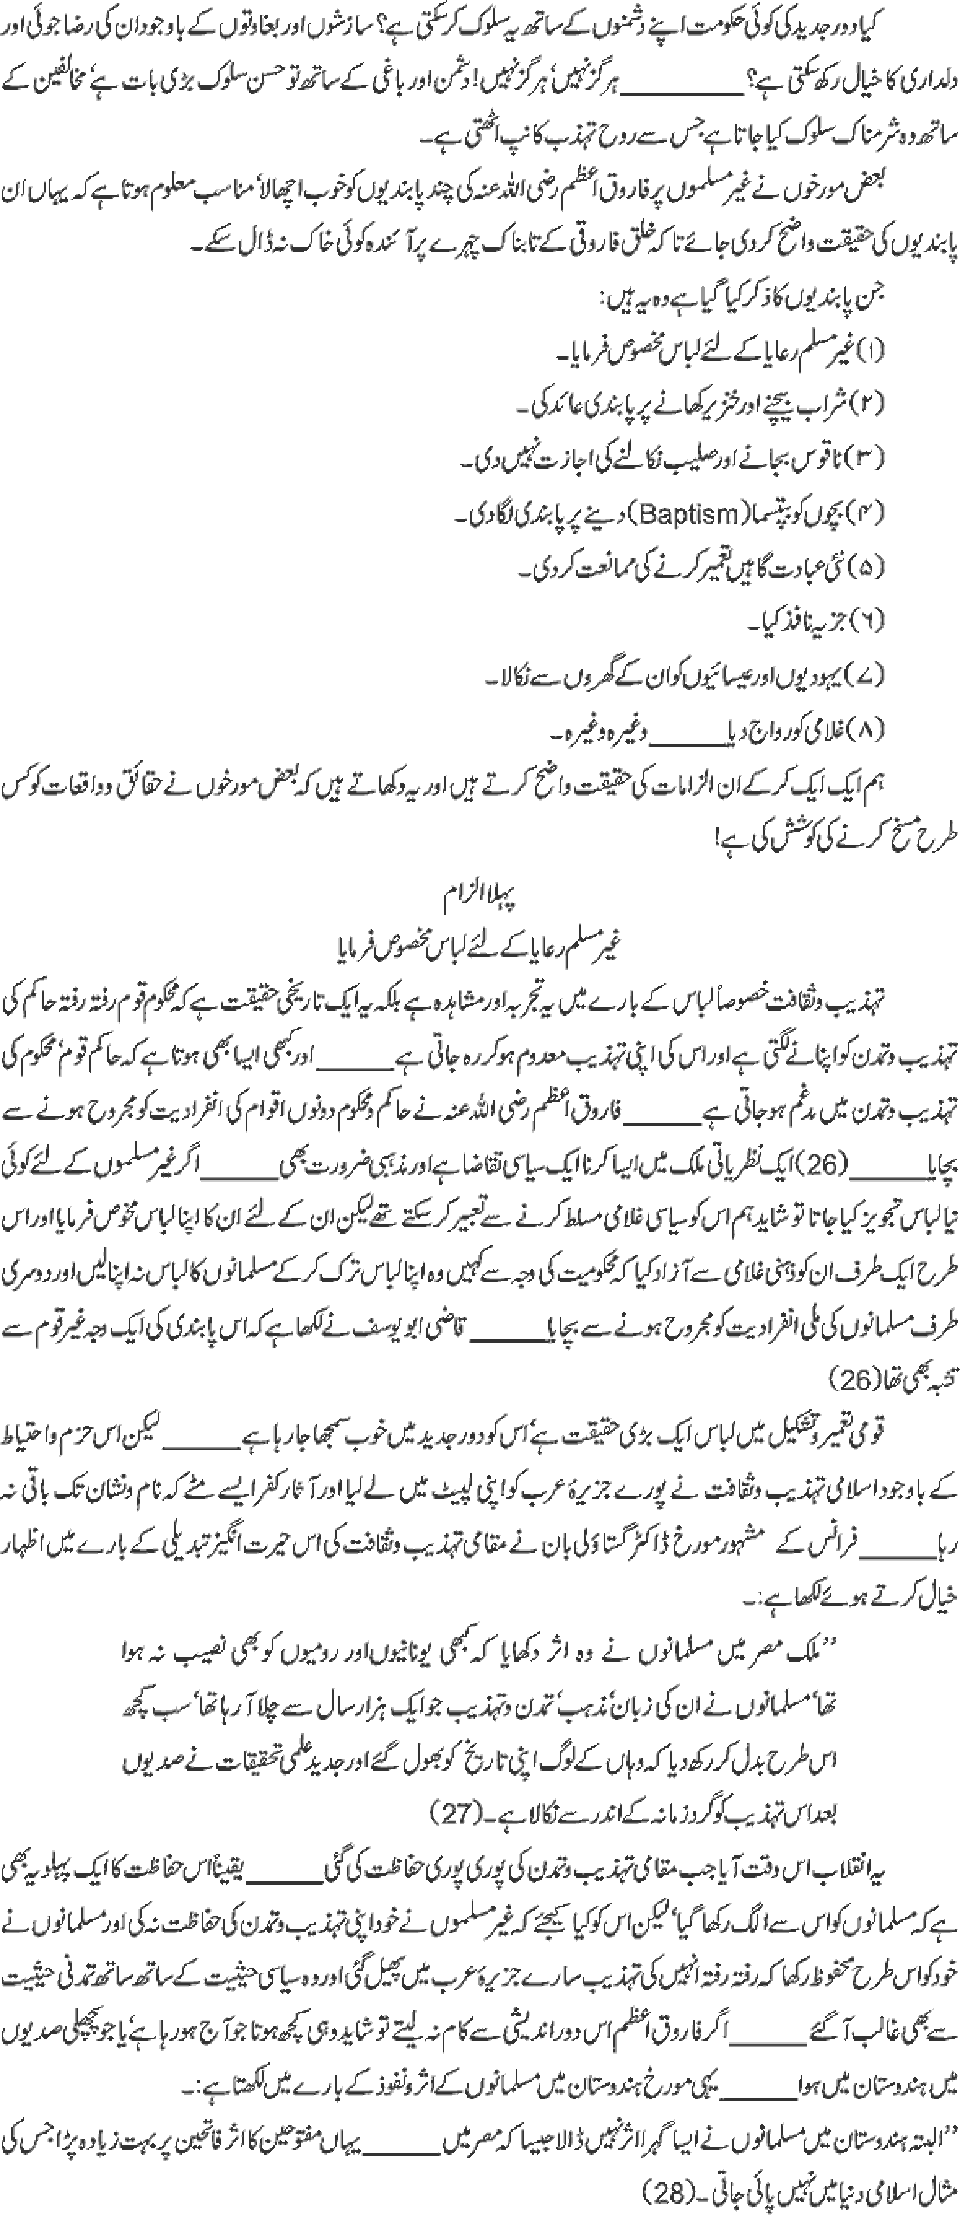 کیا دور جدید کی کوئی حکومت اپنے دشمنوں کے ساتھ یہ سلوک کر سکتی ہے؟ سازشوں اور بغاوتوں کے باوجود ان کی رضا جوئی اور
دلداری کا خیال رکھ سکتی ہے؟ ________ ہرگز نہیں‘ ہرگز نہیں! دشمن اور باغی کے ساتھ تو حسن سلوک بڑی بات ہے‘ مخالفین کے
ساتھ وہ شرمناک سلوک کیا جاتا ہے جس سے روح تہذب کانپ اٹھتی ہے۔
بعض مورخوں نے غیر مسلموں پر فاروق اعظم رضی اللہ عنہ کی چند پابندیوں کو خوب اچھالا‘ مناسب معلوم ہوتا ہے کہ یہاں ان
پابندیوں کی حقیقت واضح کردی جائے تاکہ خلق فاروقی کے تابناک چہرے پر آئندہ کوئی خاک نہ ڈال سکے۔
جن پابندیوں کا ذکر کیا گیا ہے وہ یہ ہیں:
(۱) غیر مسلم رعایا کے لئے لباس مخصوص فرمایا۔
(۲) شراب بیچنے اور خنزیر کھانے پر پابندی عائد کی۔
(۳) ناقوس بجانے اور صلیب نکالنے کی اجازت نہیں دی۔
(۴) بچوں کو بپتسما (Baptism) دینے پر پابندی لگا دی۔
(۵) نئی عبادت گاہیں تعمیر کرنے کی ممانعت کردی۔
(۶) جزیہ نافذ کیا۔
(۷) یہودیوں اور عیسائیوں کو ان کے گھروں سے نکالا۔
(۸) غلامی کو رواج دیا ______ وغیرہ وغیرہ۔
ہم ایک ایک کرکے ان الزامات کی حقیقت واضح کرتے ہیں اور یہ دکھاتے ہیں کہ بعض مورخوں نے حقائق و واقعات کو کس
طرح مسخ کرنے کی کوشش کی ہے!
پہلا الزام
غیر مسلم رعایا کے لئے لباس مخصوص فرمایا
تہذیب و ثقافت خصوصاً لباس کے بارے میں یہ تجربہ اور مشاہدہ ہے بلکہ یہ ایک تاریخی حقیقت ہے کہ محکوم قوم رفتہ رفتہ حاکم کی
تہذیب و تمدن کو اپنانے لگتی ہے اور اس کی اپنی تہذیب معدوم ہوکر رہ جاتی ہے ______ اور کبھی ایسا بھی ہوتا ہے کہ حاکم قوم‘ محکوم کی
تہذیب و تمدن میں مدغم ہوجاتی ہے ______ فاروق اعظم رضی اللہ عنہ نے حاکم و محکوم دونوں اقوام کی انفرادیت کو مجروح ہونے سے
بچایا ______ (26) ایک نظریاتی ملک میں ایسا کرنا ایک سیاسی تقاضا ہے اور مذہبی ضرورت بھی ______ اگر غیر مسلموں کے لئے کوئی
نیا لباس تجویز کیا جاتا تو شاید ہم اس کو سیاسی غلامی مسلط کرنے سے تعبیر کرسکتے تھے لیکن ان کے لئے ان کا اپنا لباس مخوص فرمایا اور اس
طرح ایک طرف ان کو ذہنی غلامی سے آزاد کیا کہ محکومیت کی وجہ سے کہیں وہ اپنا لباس ترک کرکے مسلمانوں کا لباس نہ اپنالیں اور دوسری
طرف مسلمانوں کی ملی انفرادیت کو مجروح ہونے سے بچایا ______ قاضی ابو یوسف نے لکھا ہے کہ اس پابندی کی ایک وجہ غیر قوم سے
تشبہ بھی تھا (26)
قومی تعمیر و تشکیل میں لباس ایک بڑی حقیقت ہے‘ اس کو دور جدید میں خوب سمجھا جارہا ہے ______ لیکن اس حزم و احتیاط
کے باوجود اسلامی تہذیب و ثقافت نے پورے جزیرۂ عرب کو اپنی لپیٹ میں لے لیا اور آثار کفر ایسے مٹے کہ نام و نشان تک باقی نہ
رہا ______ فرانس کے مشہور مورخ ڈاکٹر گستاؤلی بان نے مقامی تہذیب و ثقافت کی اس حیرت انگیز تبدیلی کے بارے میں اظہار
خیال کرتے ہوئے لکھا ہے:۔
’’ملک مصر میں مسلمانوں نے وہ اثر دکھایا کہ کبھی یونانیوں اور رومیوں کو بھی نصیب نہ ہوا
تھا‘ مسلمانوں نے ان کی زبان‘ مذہب‘ تمدن و تہذیب جو ایک ہزار سال سے چلا آرہا تھا‘ سب کچھ
اس طرح بدل کر رکھ دیا کہ وہاں کے لوگ اپنی تاریخ کو بھول گئے اور جدید علمی تحقیقات نے صدیوں
بعد اس تہذیب کو گرد زمانہ کے اندر سے نکالا ہے۔ (27)
یہ انقلاب اس وقت آیا جب مقامی تہذیب و تمدن کی پوری پوری حفاظت کی گئی ______ یقیناً اس حفاظت کا ایک پہلو یہ بھی
ہے کہ مسلمانوں کو اس سے الگ رکھا گیا‘ لیکن اس کو کیا کیجئے کہ غیر مسلموں نے خود اپنی تہذیب و تمدن کی حفاظت نہ کی اور مسلمانوں نے
خود کو اس طرح محفوظ رکھا کہ رفتہ رفتہ انہیں کی تہذیب سارے جزیرۂ عرب میں پھیل گئی اور وہ سیاسی حیثیت کے ساتھ ساتھ تمدنی حیثیت
سے بھی غالب آگئے ______ اگر فاروق اعظم اس دور اندیشی سے کام نہ لیتے تو شاید وہی کچھ ہوتا جو آج ہورہا ہے‘ یا جو پچھلی صدیوں
میں ہندوستان میں ہوا ______ یہی مورخ ہندوستان میں مسلمانوں کے اثر و نفوذ کے بارے میں لکھتا ہے:۔
’’البتہ ہندوستان میں مسلمانوں نے ایسا گہرا اثر نہیں ڈالا جیسا کہ مصر میں ______ یہاں مفتوحین کا اثر فاتحین پر بہت زیادہ پڑا جس کی
مثال اسلامی دنیا میں نہیں پائی جاتی۔ (28)